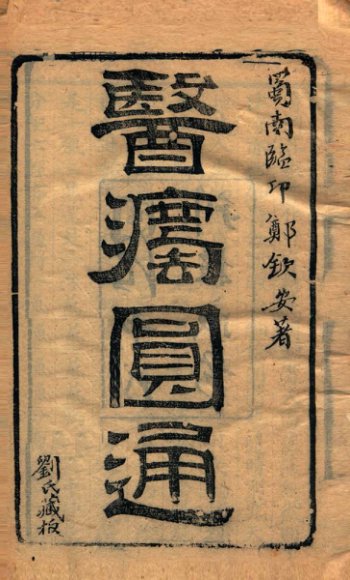 蜀南臨邛鄭欽安著
醫灋圓通
劉氏藏板